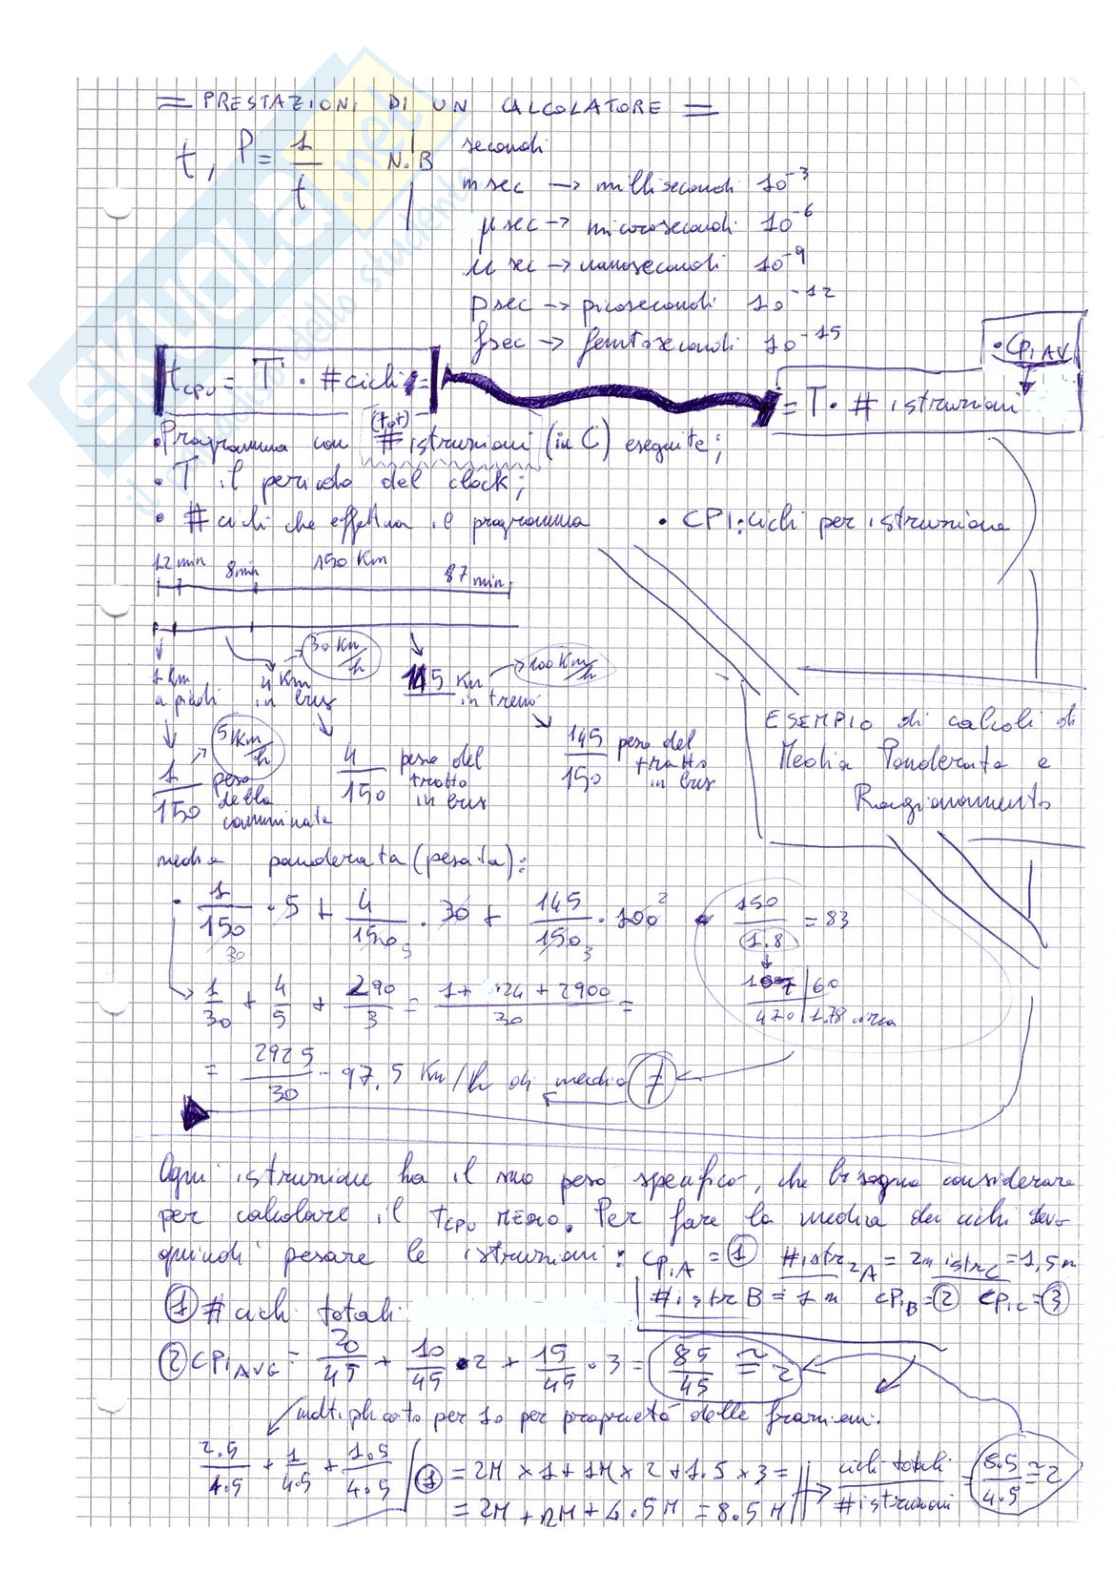 = PRESTAZIONI DI UN CALCOLATORE =
t, P = 1/t N.B secondi
msec -> millisecondi 10^-3
μsec -> microsecondi 10^-6
nsec -> nanosecondi 10^-9
psec -> picosecondi 10^-12
fsec -> femtosecondi 10^-15
• CPI AV.
tCPU = T • #cicli = = T • # istruzioni
(tot)
• Programma con # istruzioni (in C) eseguite;
• T il periodo del clock;
• # cicli che effettua il programma • CPI: cicli per istruzione
12 min 8 min 150 Km 87 min
30 Km/h
1 Km a piedi 4 Km in bus 145 Km in treno 100 Km/h
5 Km/h
1/150 peso della camminata 4/150 peso del tratto in bus 145/150 peso del tratto in bus
ESEMPIO di calcoli di
Media Ponderata e
Ragionamento
media ponderata (pesata):
• 1/150 • 5 + 4/150 • 30 + 145/150 • 100 • 150/1.8 = 83
30 5 3 2
107 | 60
470 | 1.78 circa
1/30 + 4/5 + 290/3 = 1 + 24 + 2900/30 =
= 2925/30 = 97,5 Km/h di media
Ogni istruzione ha il suo peso specifico, che bisogna considerare
per calcolare il TCPU MEDIO. Per fare la media dei cicli devo
quindi pesare le istruzioni: CPIA = 1 #istr A = 2m istr C = 1,5m
#istr B = 1m CPIB = 2 CPIC = 3
1 # cicli totali
2 CPI AVG = 20/45 + 10/45 • 2 + 15/45 • 3 = 85/45 ≅ 2
moltiplicato per 10 per proprietà delle frazioni.
2.5/4.5 + 1/4.5 + 1.5/4.5 1 = 2M x 1 + 1M x 2 + 1.5 x 3 = cicli totali/#istruzioni = 8.5/4.5 ≅ 2
= 2M + 2M + 4.5M = 8.5M